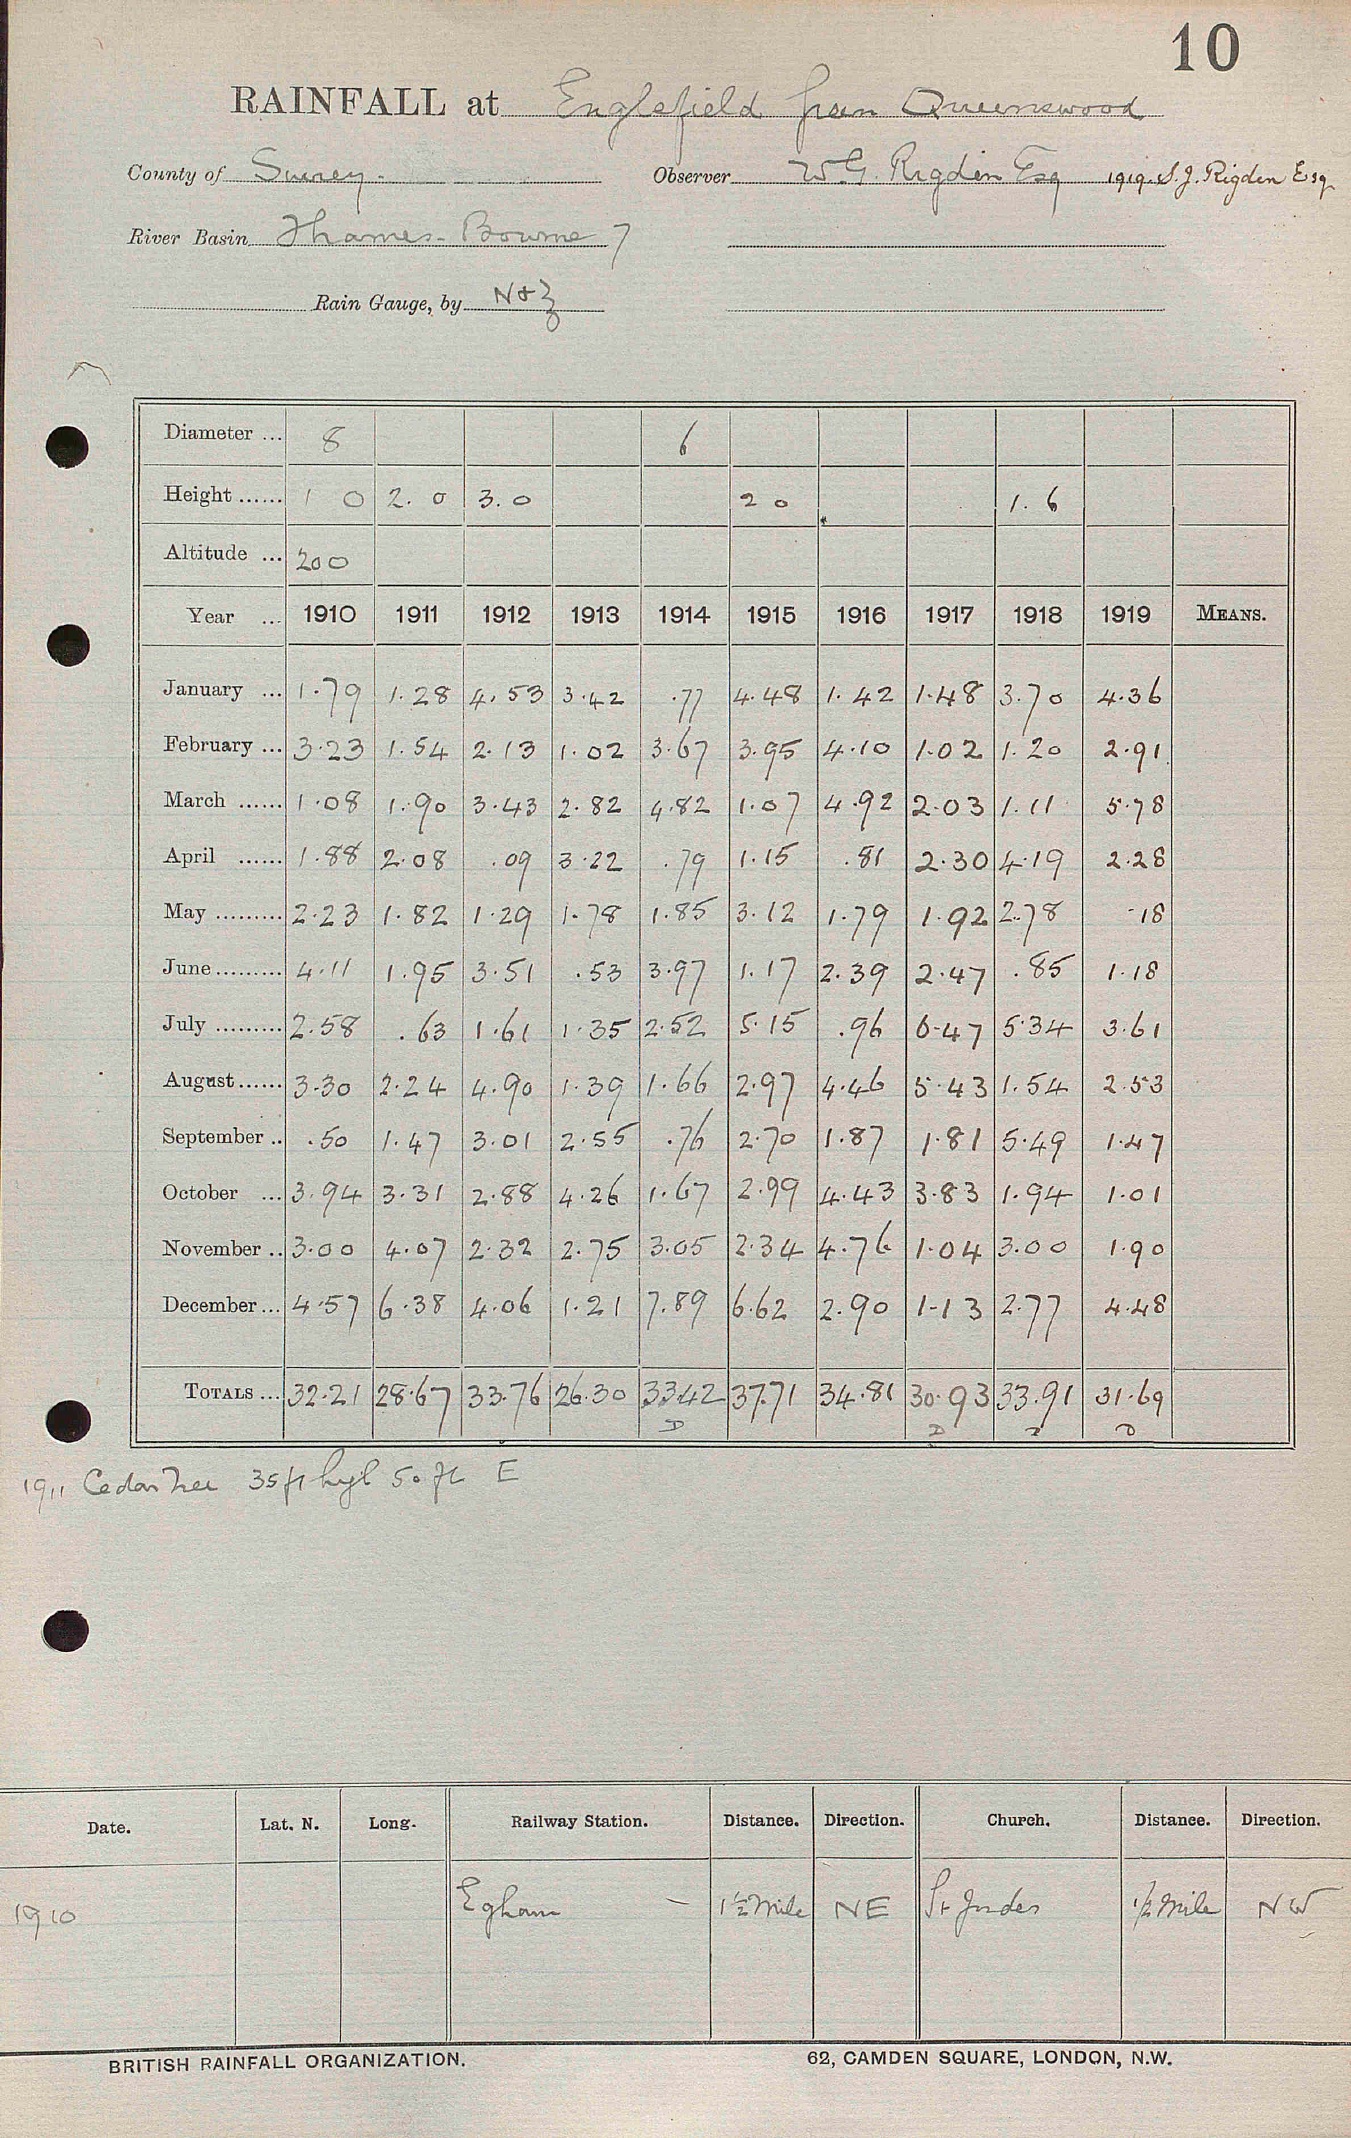 10
RAINFALL at Englefield Green Queenswood
County of Surrey. Observer W. G. Rigden Esq 1919. S. J. Rigden Esq
River Basin Thames - Bourne 7
Rain Gauge, by N & Z
Diameter ... 8 6
Height ...... 1 0 2. 0 3. 0 2 0 1. 6
Altitude ... 200
Year ... 1910 1911 1912 1913 1914 1915 1916 1917 1918 1919 MEANS.
January ... 1.79 1.28 4.53 3.42 .77 4.48 1.42 1.48 3.70 4.36
February ... 3.23 1.54 2.13 1.02 3.67 3.95 4.10 1.02 1.20 2.91
March ...... 1.08 1.90 3.43 2.82 4.82 1.07 4.92 2.03 1.11 5.78
April ...... 1.88 2.08 .09 3.22 .79 1.15 .81 2.30 4.19 2.28
May ......... 2.23 1.82 1.29 1.78 1.85 3.12 1.79 1.92 2.78 .18
June ......... 4.11 1.95 3.51 .53 3.97 1.17 2.39 2.47 .85 1.18
July ......... 2.58 .63 1.61 1.35 2.52 5.15 .96 6.47 5.34 3.61
August ...... 3.30 2.24 4.90 1.39 1.66 2.97 4.46 5.43 1.54 2.53
September .. .50 1.47 3.01 2.55 .76 2.70 1.87 1.81 5.49 1.47
October ... 3.94 3.31 2.88 4.26 1.67 2.99 4.43 3.83 1.94 1.01
November .. 3.00 4.07 2.32 2.75 3.05 2.34 4.76 1.04 3.00 1.90
December ... 4.57 6.38 4.06 1.21 7.89 6.62 2.90 1.13 2.77 4.48
TOTALS ... 32.21 28.67 33.76 26.30 33.42 37.71 34.81 30.93 33.91 31.69
D D D D
1911 Cedar Tree 35 ft high 50 ft E
Date. Lat. N. Long. Railway Station. Distance. Direction. Church. Distance. Direction.
1910 Egham - 1½ Mile NE St Judes ½ Mile NW
BRITISH RAINFALL ORGANIZATION. 62, CAMDEN SQUARE, LONDON, N.W.